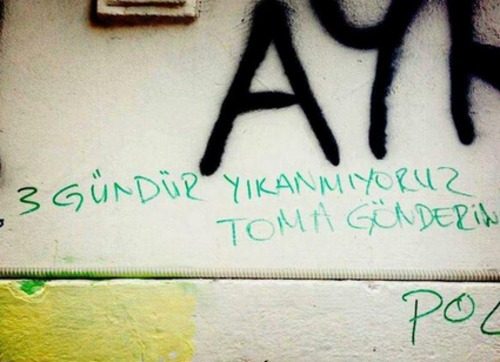 AYK
3 GÜNDÜR YIKANMIYORUZ
TOMA GÖNDERİN
POL